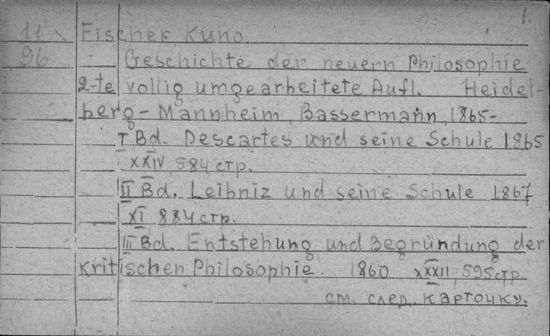 1.
11 Fischer Kuno.
96 Geschichte der neuern Philosophie
2-te vollig umgearbeitete Aufl. Heidel-
berg - Mannheim, Bassermann, 1865-
I Bd. Descartes und seine Schule 1865
XXIV, 584 стр.
II Bd. Leibniz und seine Schule 1867
XI 884 стр.
III Bd. Entstehung und Begründung der
kritischen Philosophie. 1860 XXXII, 595 стр
см. след. карточку.